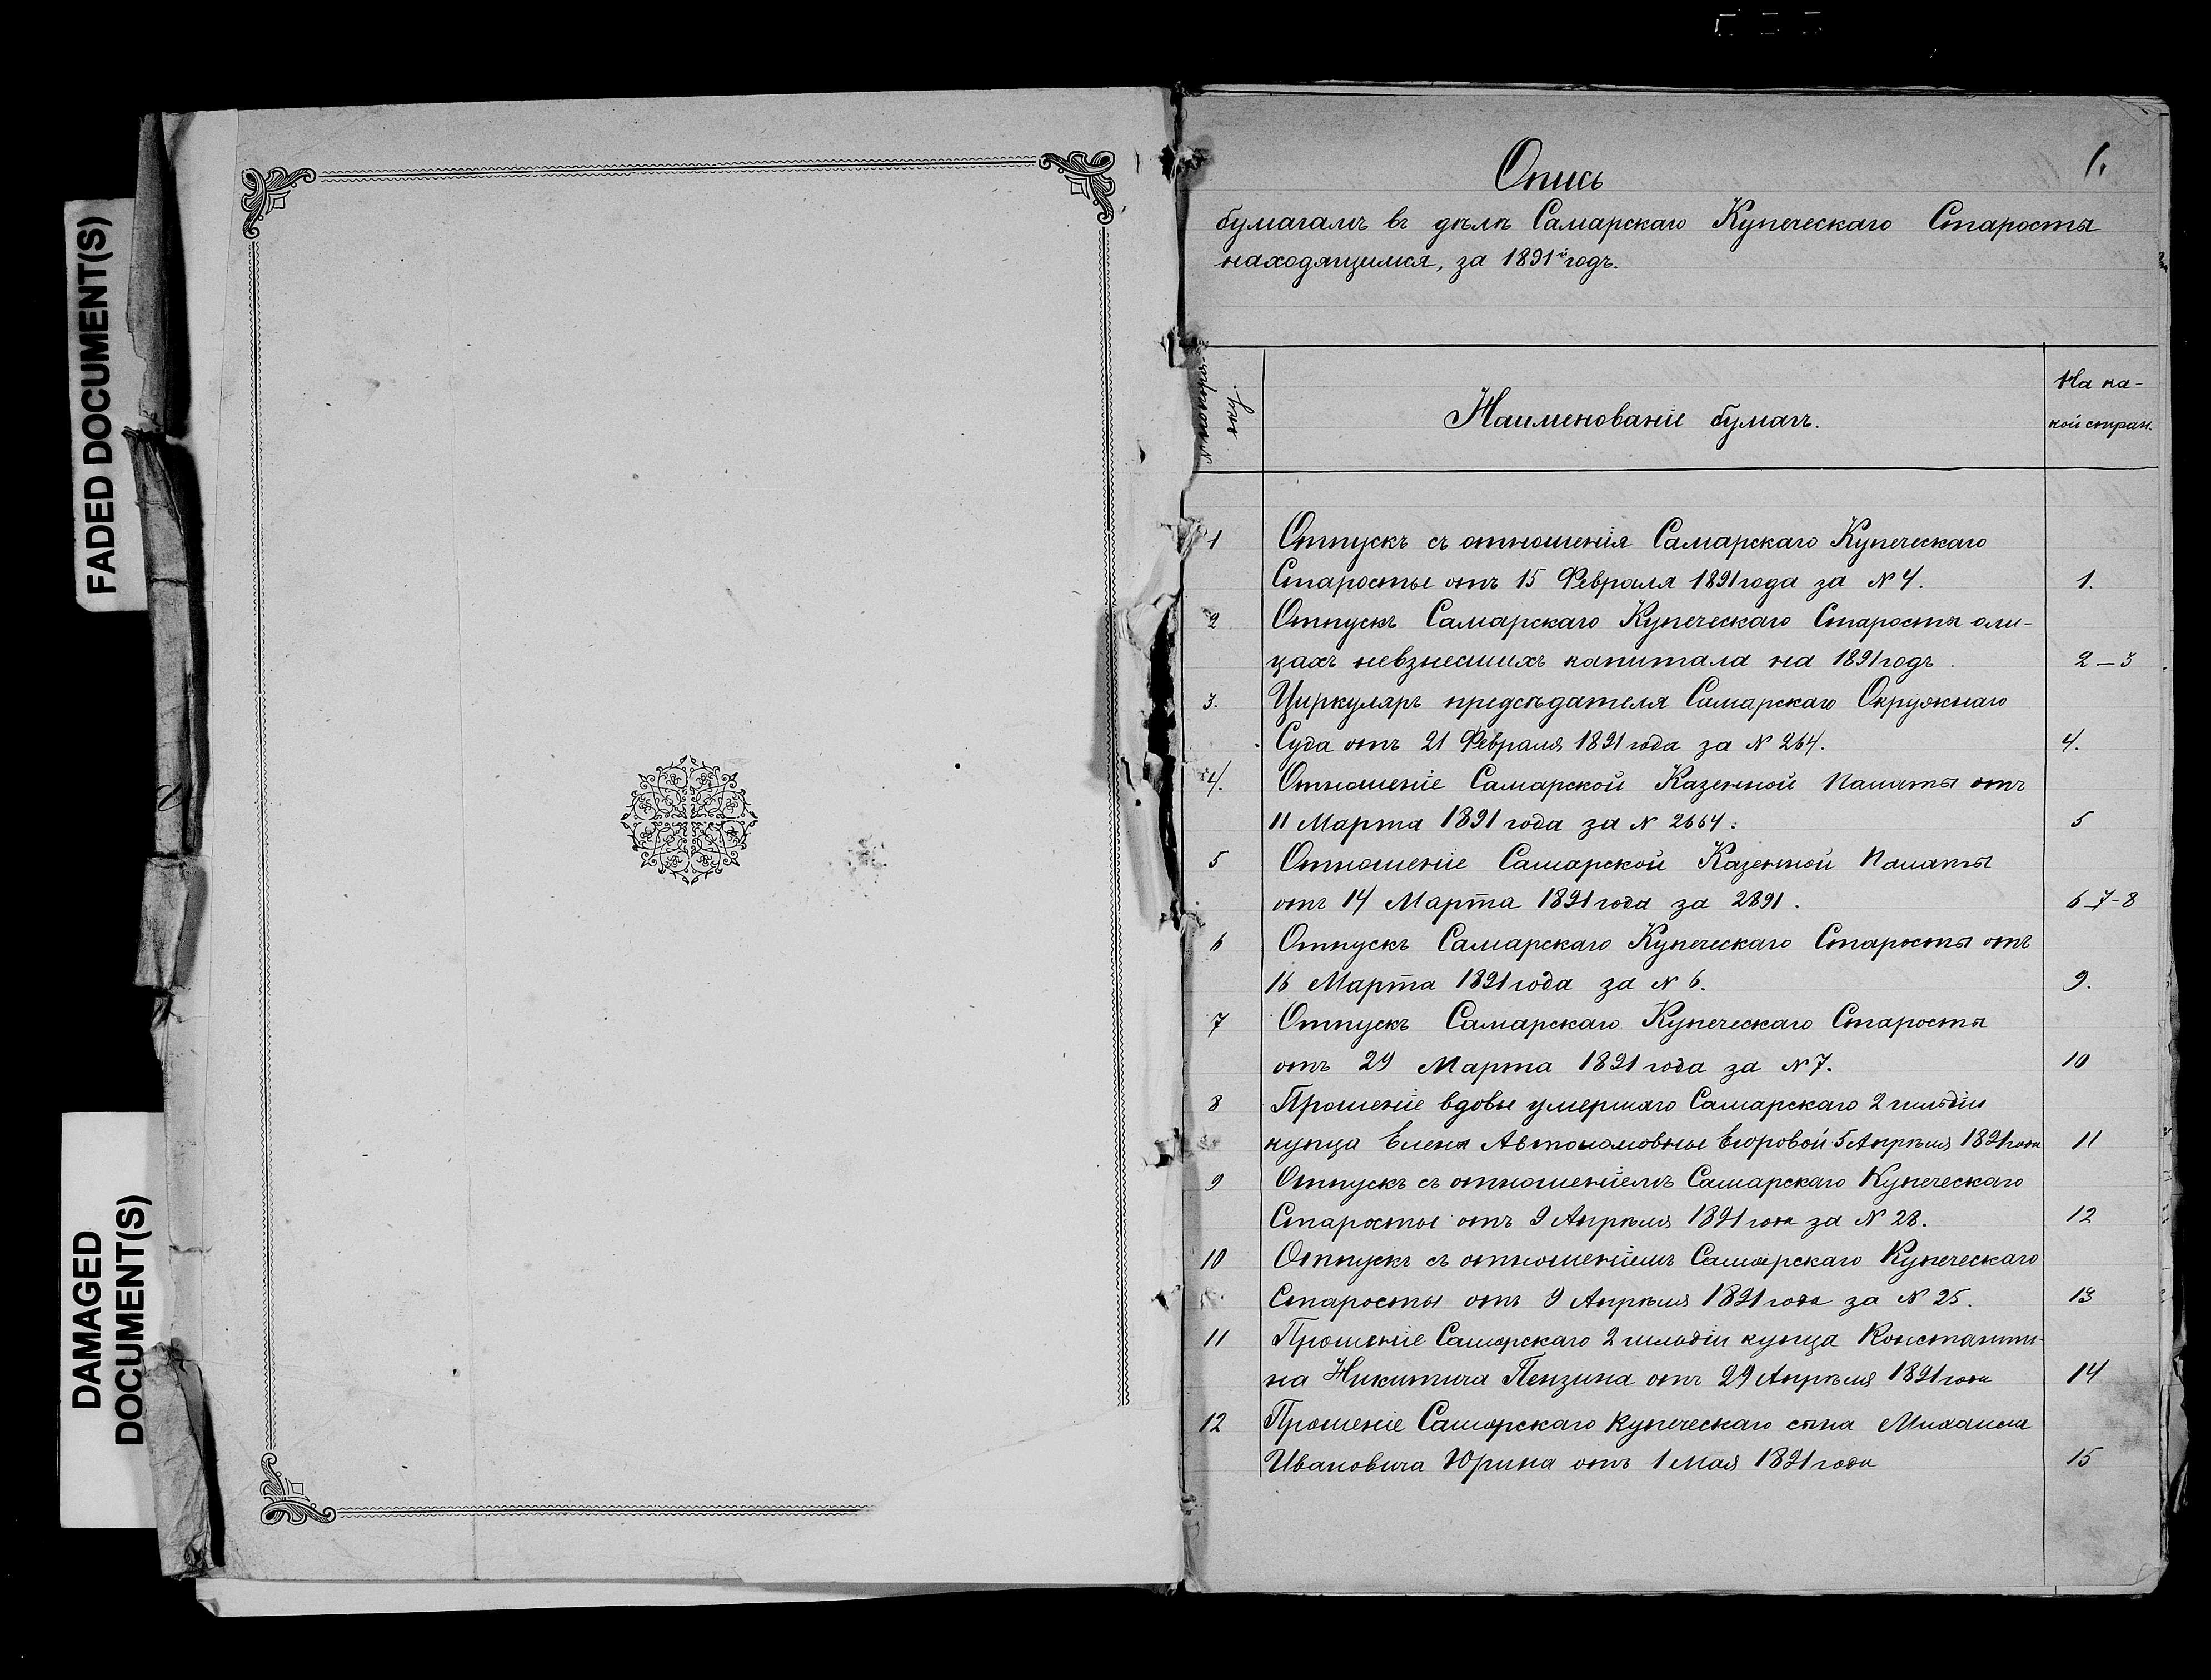 FADED DOCUMENT(S)
DAMAGED
DOCUMENT(S)
1.
Опись
бумагамъ въ дѣлѣ Самарскаго Купеческаго Старосты
находящимся, за 1891й годъ.
Наименованіе бумагъ.
На ка-
кой стран.
1 Отпускъ съ отношенія Самарскаго Купеческаго
Старосты отъ 15 Февраля 1891 года за № 4. 1.
2 Отпускъ Самарскаго Купеческаго Старосты оли-
цахъ невзнесшихъ капитала на 1891 годъ. 2–3
3. Циркуляръ предсѣдателя Самарскаго Окружнаго
Суда отъ 21 Февраля 1891 года за № 264. 4.
4. Отношеніе Самарской Казенной Палаты отъ
11 Марта 1891 года за № 2664. 5
5 Отношеніе Самарской Казенной Палаты
отъ 14 Марта 1891 года за 2891. 6-7-8
6 Отпускъ Самарскаго Купеческаго Старосты отъ
16 Марта 1891 года за № 6. 9.
7 Отпускъ Самарскаго Купеческаго Старосты
отъ 29 Марта 1891 года за № 7. 10
8 Прошеніе вдовы умершяго Самарскаго 2 гильдіи
купца Елены Автономовны Егоровой 5 Апрѣля 1891 года 11
9 Отпускъ съ отношеніемъ Самарскаго Купеческаго
Старосты отъ 9 Апрѣля 1891 года за № 28. 12
10 Отпускъ съ отношеніемъ Самарскаго Купеческаго
Старосты отъ 9 Апрѣля 1891 года за № 25. 13
11 Прошеніе Самарскаго 2 гильдіи купца Константи-
на Никитича Пензина отъ 29 Апрѣля 1891 года 14
12 Прошеніе Самарскаго Купеческаго сына Михаила
Ивановича Юрина отъ 1 Мая 1891 года 15